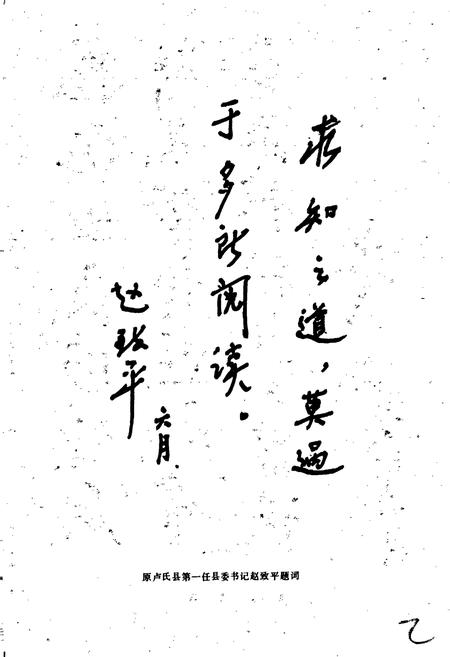 知之道，莫过
于多所阅读。
赵致平
六月
原卢氏县第一任县委书记赵致平题词